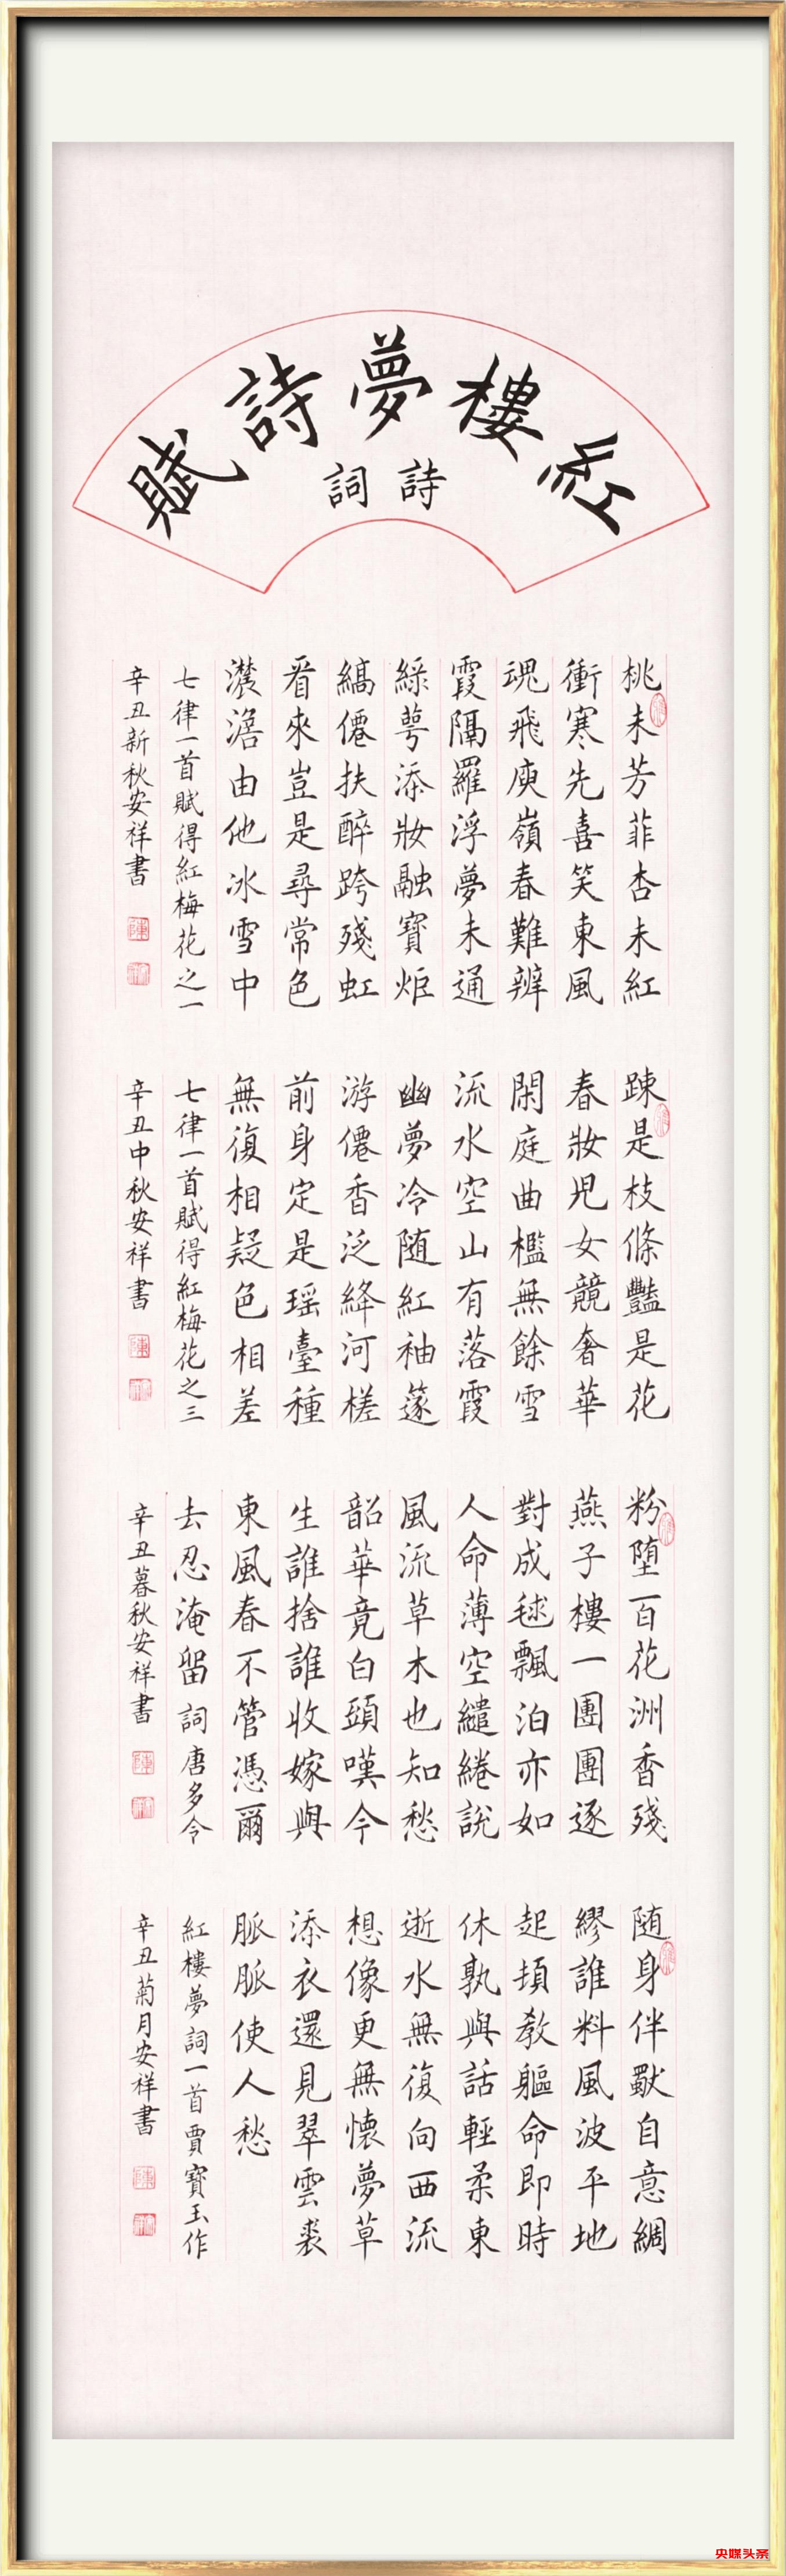 紅樓夢詩賦
詩詞
桃未芳菲杏未紅
衝寒先喜笑東風
魂飛庾嶺春難辨
霞隔羅浮夢未通
綠萼添妝融寶炬
縞僊扶醉跨殘虹
看來豈是尋常色
濃澹由他冰雪中
七律一首賦得紅梅花之一
辛丑新秋安祥書
踈是枝條豔是花
春妝児女競奢華
閑庭曲檻無餘雪
流水空山有落霞
幽夢冷随紅袖篴
游僊香泛絳河槎
前身定是瑶臺種
無復相疑色相差
七律一首賦得紅梅花之三
辛丑中秋安祥書
粉堕百花洲香殘
燕子樓一團團逐
對成毬飄泊亦如
人命薄空繾綣說
風流草木也知愁
韶華竟白頭嘆今
生誰捨誰收嫁與
東風春不管憑爾
去忍淹留 詞唐多令
辛丑暮秋安祥書
随身伴獸自意綢
繆誰料風波平地
起頓教軀命即時
休孰與話輕柔東
逝水無復向西流
想像更無懷夢草
添衣還見翠雲裘
脈脈使人愁
紅樓夢詞一首賈寶玉作
辛丑菊月安祥書
央媒头条